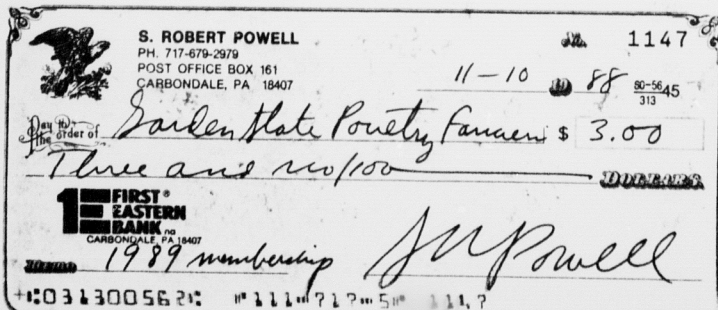 S. ROBERT POWELL
PH. 717-679-2979
POST OFFICE BOX 161
CARBONDALE, PA 18407
No. 1147
11-10 19 88
60-5645
313
Pay to the order of Garden State Poultry Fanciers $ 3.00
Three and no/100 DOLLARS
1E FIRST®
EASTERN
BANK na
CARBONDALE, PA 18407
MEMO 1989 membership
S R Powell